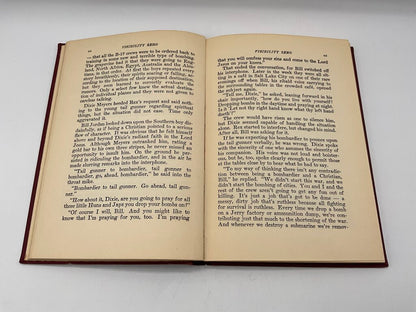 VISIBILITY ZERO
— that all the B-17 crews were to be ordered back to
and trained in some new type of bombing.
The grapevine had it that they were going to Eng-
land, North Africa, Egypt, Australia and the Alue-
tians, all at one time. At first the boys repeated every
rumor excitedly, their spirits soaring or falling, ac-
cording to the location of their supposed destination,
but after a while they became calloused to all the
rumors. Only a select few knew the actual destination
of individual planes and they were not given to
careless talking.
Dixie Mayers heeded Rex's request and said noth-
ing to the young tail gunner regarding spiritual
things, but the situation did not ease. Time only
aggravated it.
Bill Jordan looked down upon the Southern boy dis-
dainfully, as if being a Christian pointed to a serious
flaw of character. It was obvious that he felt himself
above and beyond Dixie's radiant faith in the Lord
Jesus. Although Mayers outranked him, rating a
gold bar to his own three stripes, he never missed an
opportunity to bait him. On the ground he per-
sisted in ridiculing the bombardier, and in the air he
made sneering remarks into the interphone.
"Tail gunner to bombardier, tail gunner to
bombardier, go ahead, bombardier," he said into the
throat mike.
"Bombardier to tail gunner. Go ahead, tail gun-
ner."
"How about it, Dixie, are you going to pray for all
three little Huns and Japs you drop your bombs on?"
"Of course I will, Bill. And you might like to
know that I'm praying for you, too. I'm praying
VISIBILITY ZERO
that you will confess your sins and come to the Lord
Jesus on your knees."
That ended the conversation, for Bill switched off
his interphone. Later in the week they were all sit-
ting in a café in Salt Lake City on one of their rare
evenings off when Bill, his shrill voice carrying to
the surrounding tables in the crowded café, spread
the attack again.
"Tell us, Dixie," he asked, leaning forward in his
chair importantly, "how do you live with yourself?
Dropping bombs in the daytime and praying at night.
'Let not thy left hand know what thy right hand
doeth?'"
The crew would have risen as one to silence him,
but Dixie seemed capable of handling the situation
alone. Rex started to interfere, but changed his mind.
After all, Bill was asking for it.
If he was expecting his bombardier to pounce upon
the tail gunner verbally, he was wrong. Dixie spoke
with the sincerity of one who assumes the sincerity of
his companion. His voice was not loud and boister-
ous, but he, too, spoke clearly enough to permit those
at the tables close by to hear what he was saying.
"To my way of thinking there isn't any contradic-
tion between being a bombardier and a Christian,
Bill," he replied. "We didn't start this war, and we
didn't start the bombing of cities. You and I and the
rest of the crew aren't going to get any fun out of
killing. It's just a job that's got to be done — a
messy, dirty job that's ruthless because all fighting
for survival is ruthless. Every time we drop a bomb
on a Jerry factory or ammunition dump, we're con-
tributing just that much to the shortening of the war.
And whenever we destroy a submarine we're remov-